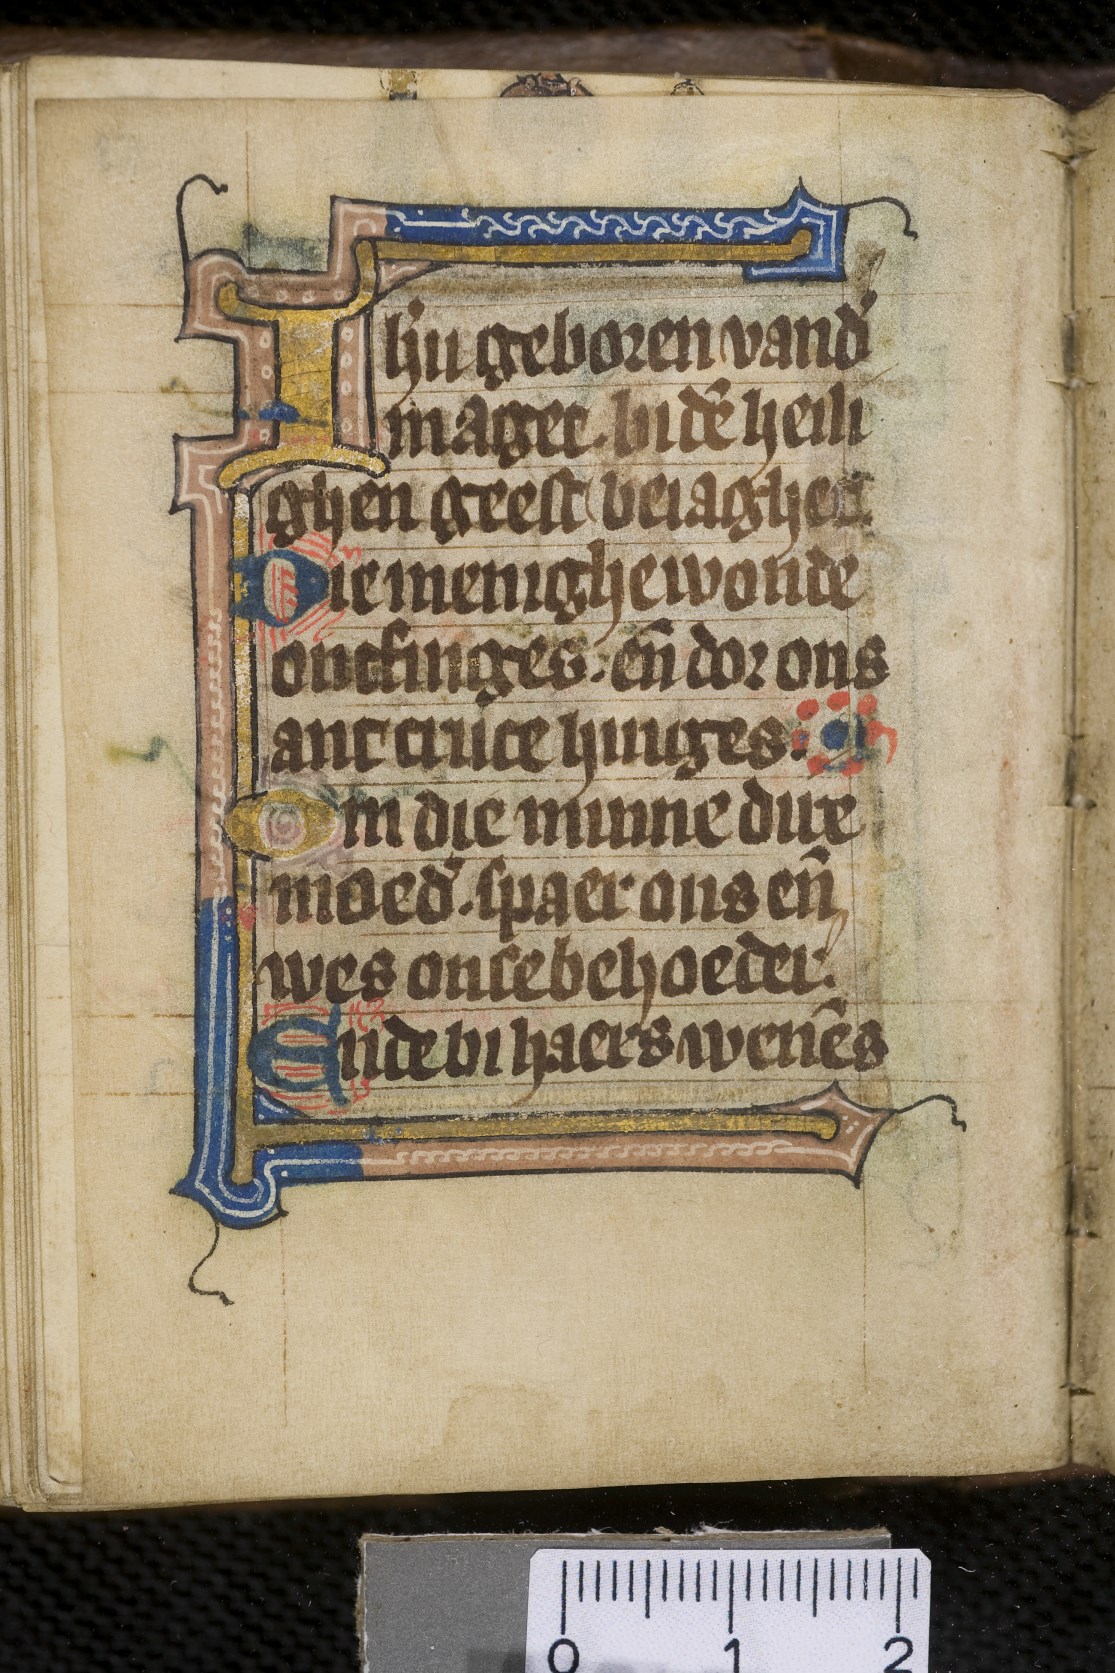 Ih̅u geboren vand'
maget. bi dē heili
ghen geest beiaghet.
Die menighe wonde
ontfinges. en̄ dor ons
ant cruce hinges.
Om die minne dire
moed'. spaer ons en̄
wes onse behoeder.
Ende bi haers wenēs
0 1 2